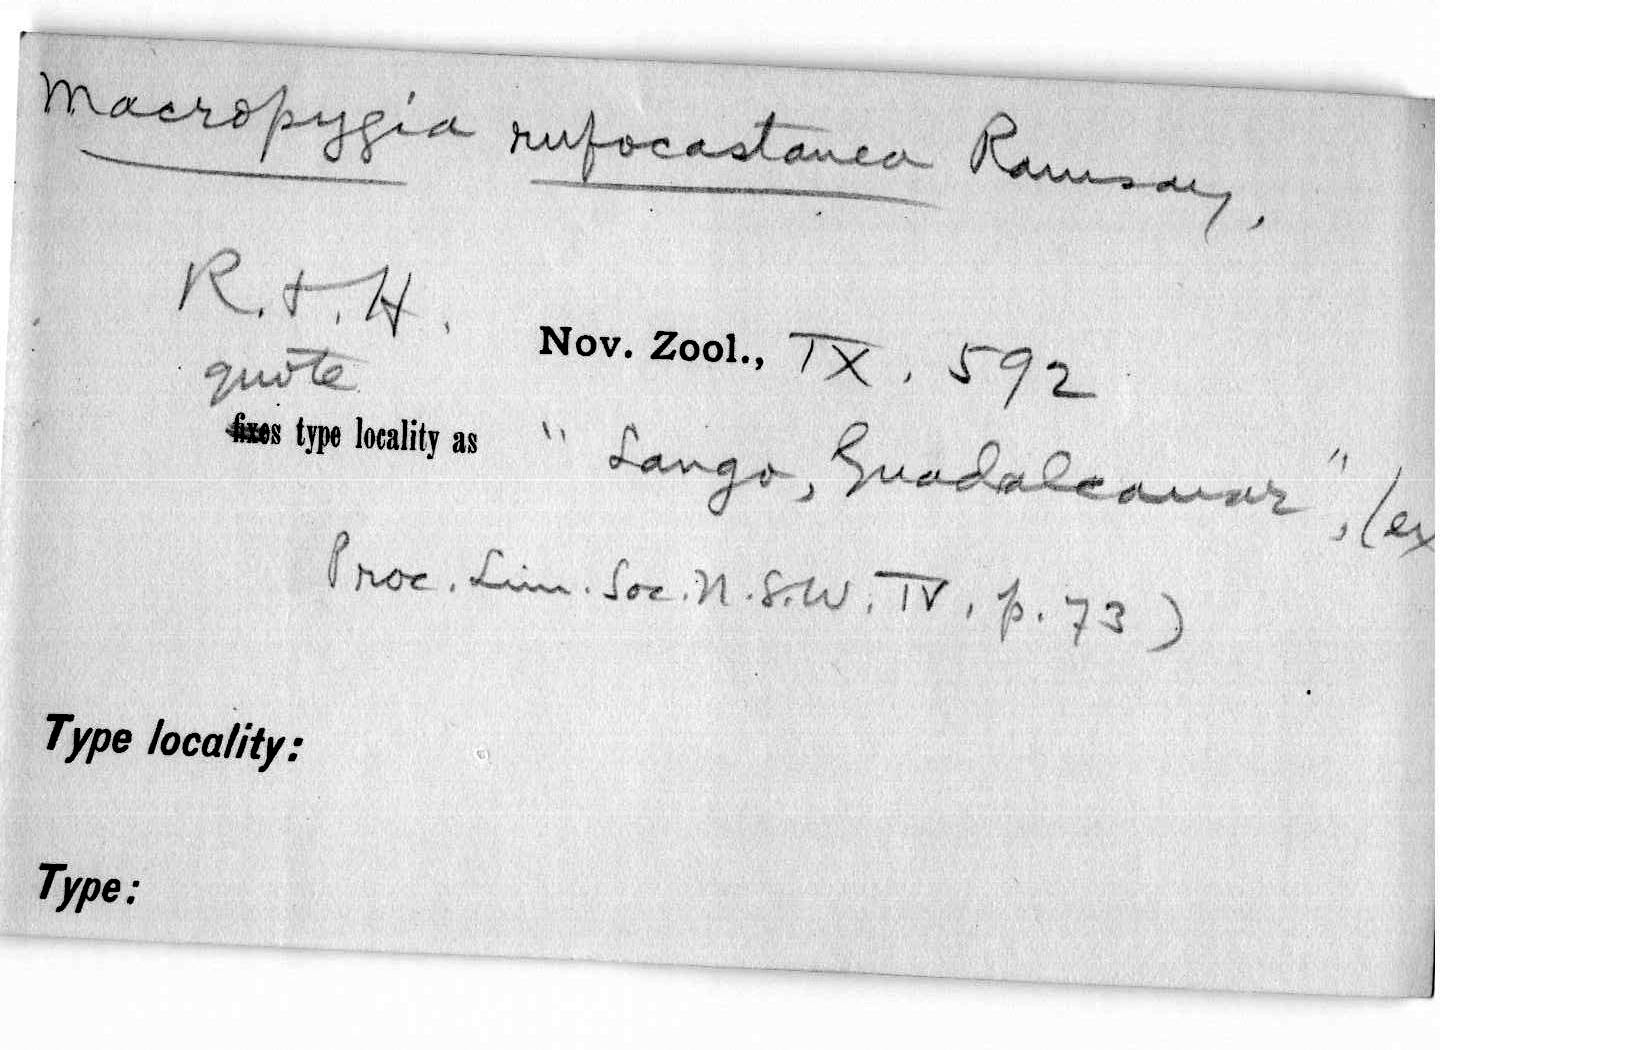 Macropygia rufocastanea Ramsay,
R. & H.
Nov. Zool., IX. 592
quote
fixes type locality as " Lango, Guadalcanar", (ex
Proc. Linn. Soc. N.S.W. IV, p. 73)
Type locality:
Type: